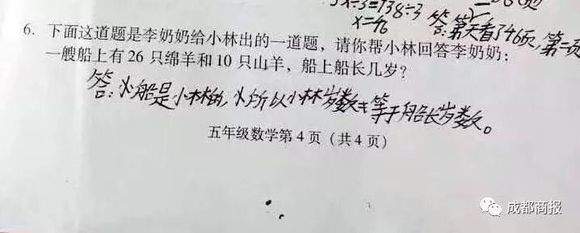 x÷3=138÷3
x=46
答:第一天看了46页,第二页
6. 下面这道题是李奶奶给小林出的一道题，请你帮小林回答李奶奶：
一艘船上有 26 只绵羊和 10 只山羊，船上船长几岁？
答:小船是小林的,所以小林岁数等于船长岁数。
五年级数学第 4 页（共 4 页）
成都商报